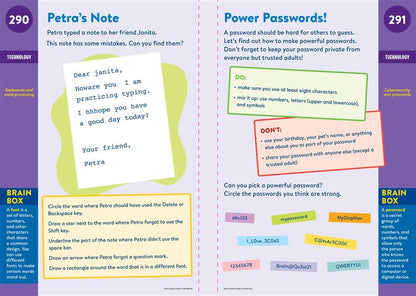 290
TECHNOLOGY
Keyboards and
word processing
BRAIN
BOX
A font is a
set of letters,
numbers,
and other
characters
that share
a common
design. You
can use
different
fonts to make
certain words
stand out.
Petra's Note
Petra typed a note to her friend Janita.
This note has some mistakes. Can you find them?
Dear janita,
Howare you  I am
practicing typing.
I hhhope you have
a good day today!
Your friend,
Petra
Circle the word where Petra should have used the Delete or
Backspace key.
Draw a star next to the word where Petra forgot to use the
Shift key.
Underline the part of the note where Petra didn't use the
space bar.
Draw an arrow where Petra forgot a question mark.
Draw a rectangle around the word that is in a different font.
Power Passwords!
A password should be hard for others to guess.
Let's find out how to make powerful passwords.
Don't forget to keep your password private from
everyone but trusted adults!
DO:
• make sure you use at least eight characters
• mix it up: use numbers, letters (upper and lowercase),
and symbols
DON'T:
• use your birthday, your pet's name, or anything
else about you as part of your password
• share your password with anyone else (except a
trusted adult)
Can you pick a powerful password?
Circle the passwords you think are strong.
abc123
mypassword
MyDogMax
12345678
QWERTYUI
291
TECHNOLOGY
Cybersecurity
and passwords
BRAIN
BOX
A password
is a secret
group of
words,
numbers, and
symbols that
allow only
the person
who knows
the password
to access a
computer or
digital device.